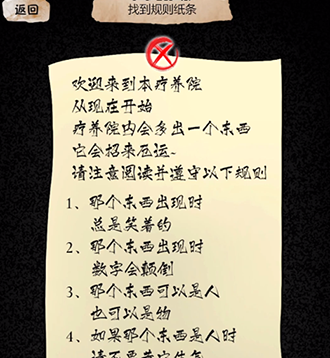 返回
找到规则纸条
欢迎来到本疗养院
从现在开始
疗养院内会多出一个东西
它会招来厄运~
请注意阅读并遵守以下规则
1、那个东西出现时
总是笑着的
2、那个东西出现时
数字会颠倒
3、那个东西可以是人
也可以是物
4、如果那个东西出现时
请不要